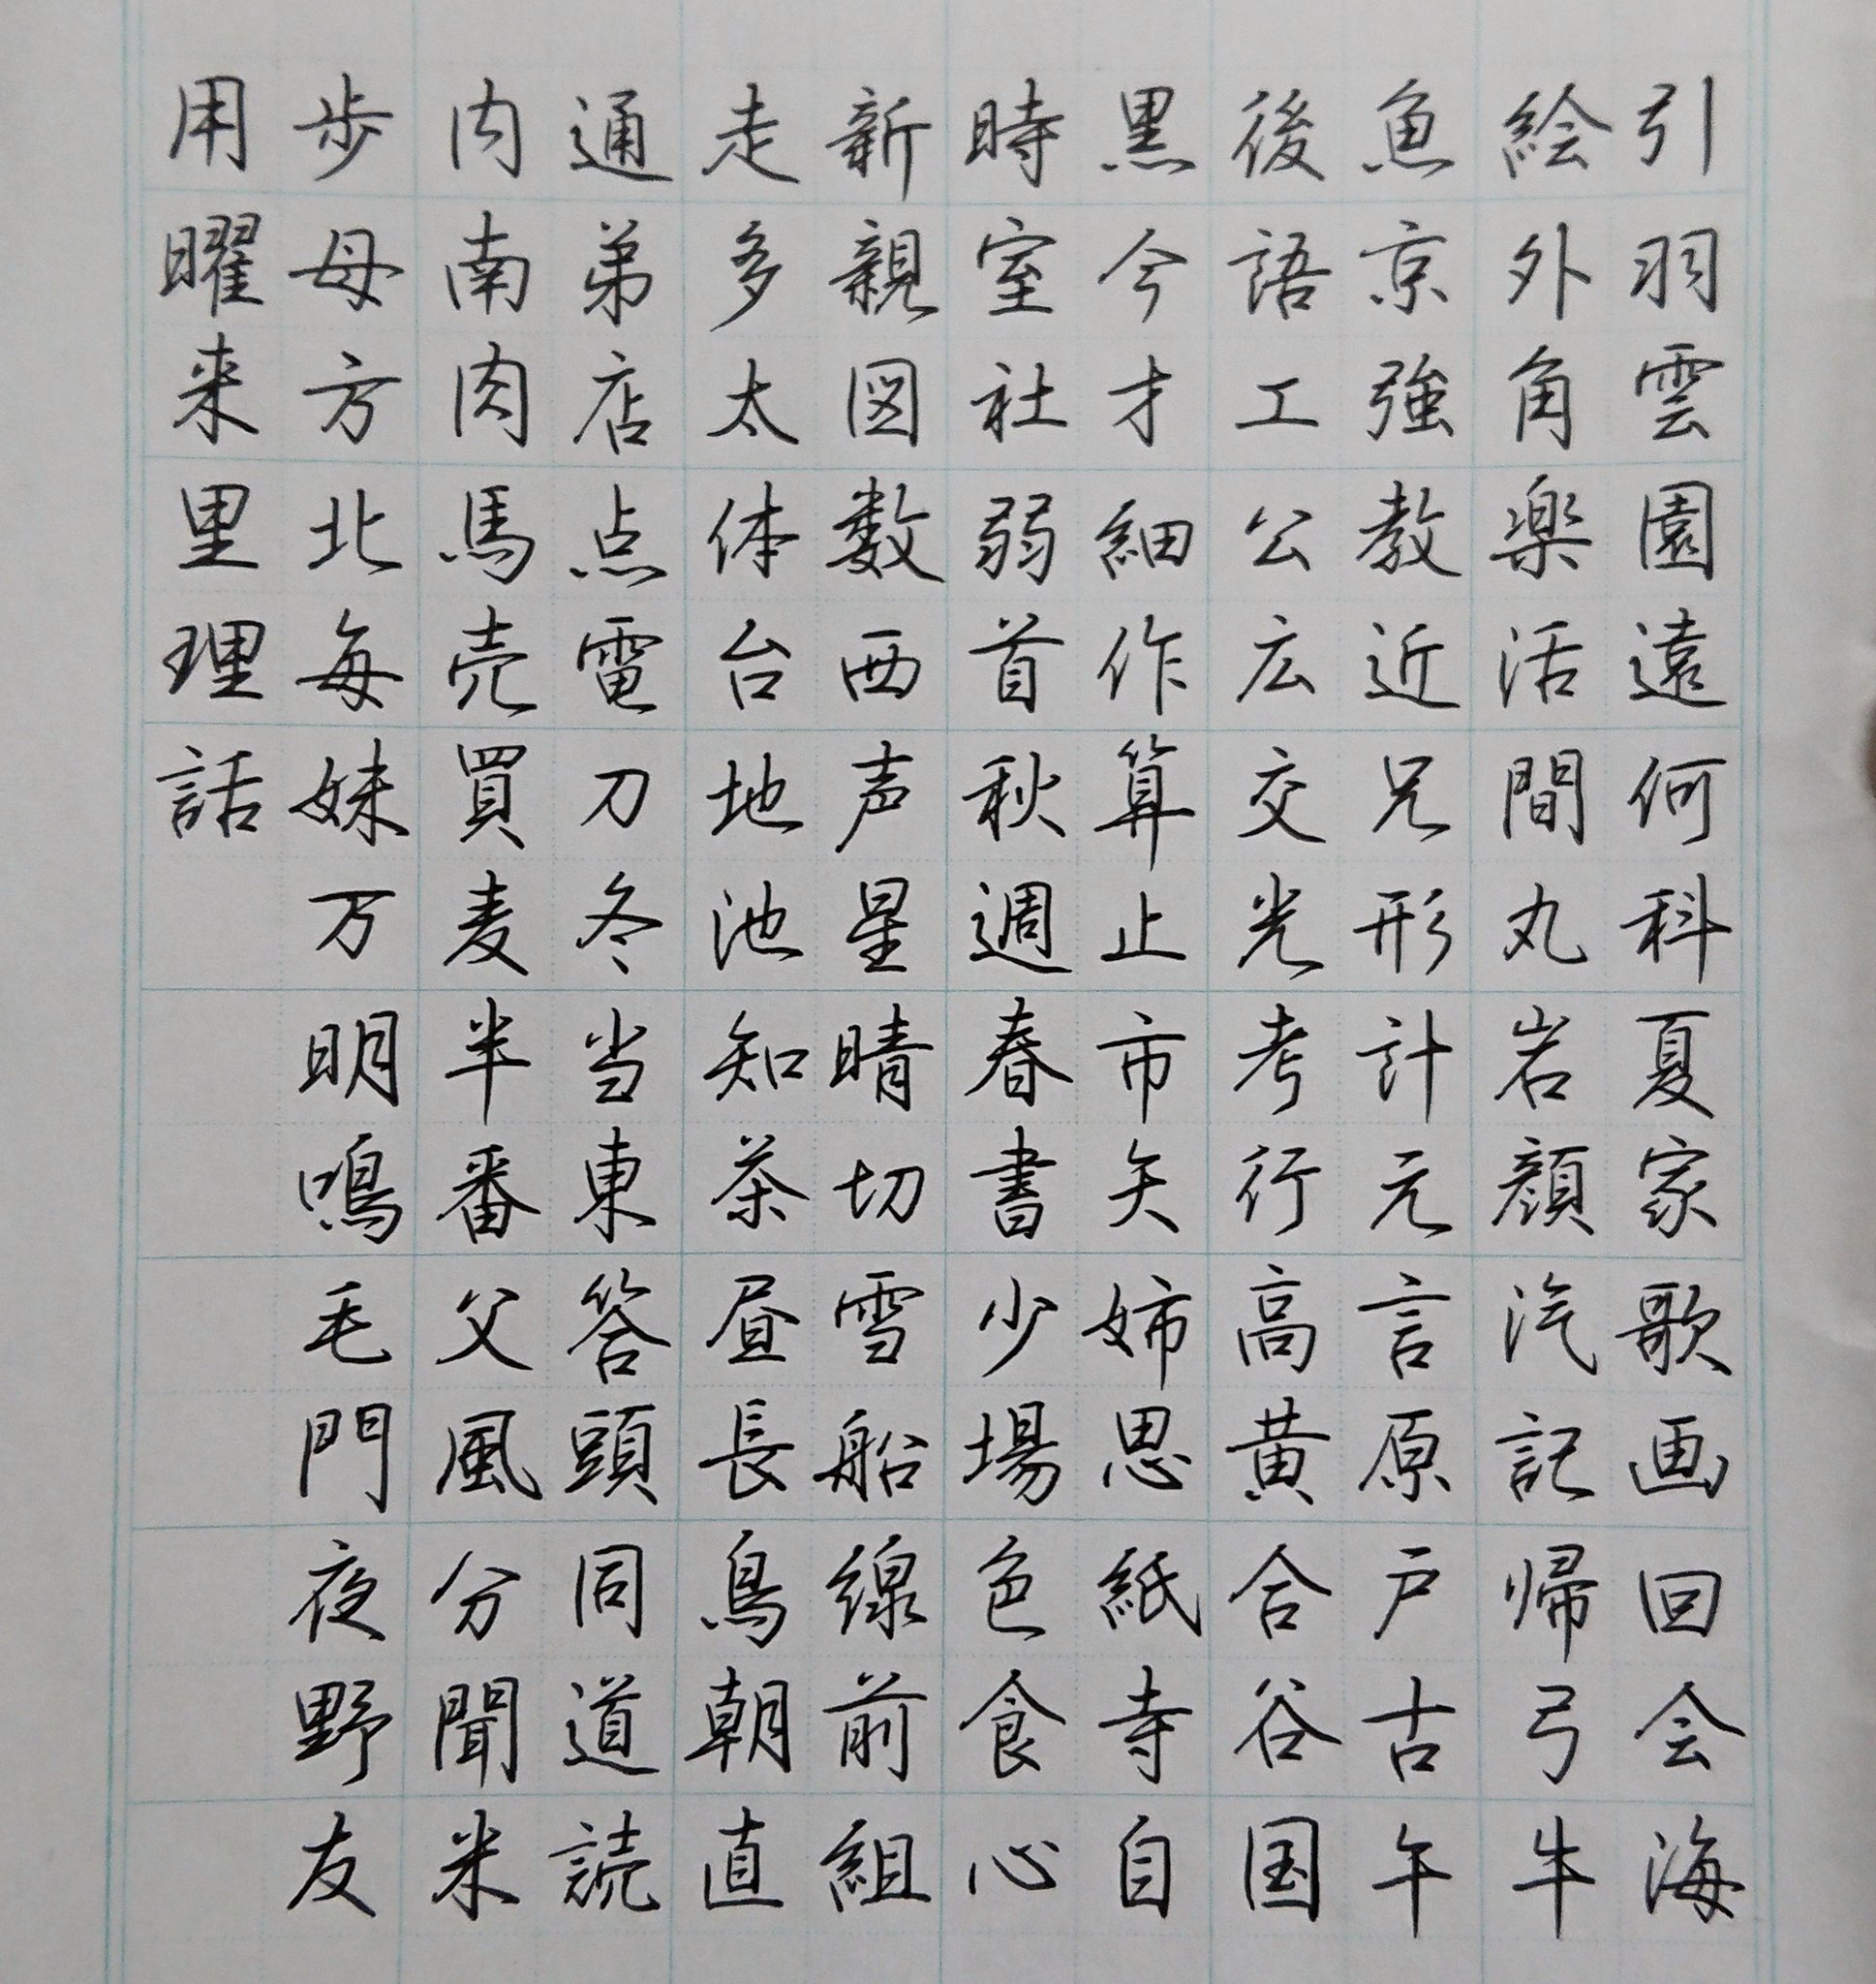 引羽雲園遠何科夏家歌画回会海
絵外角楽活間丸岩顔汽記帰弓牛
魚京強教近兄形計元言原戸古午
後語工公広交光考行高黄合谷国
黒今才細作算止市矢姉思紙寺自
時室社弱首秋週春書少場色食心
新親図数西声星晴切雪船線前組
走多太体台地池知茶昼長鳥朝直
通弟店点電刀冬当東答頭同道読
内南肉馬売買麦半番父風分聞米
歩母方北毎妹万明鳴毛門夜野友
用曜来里理話